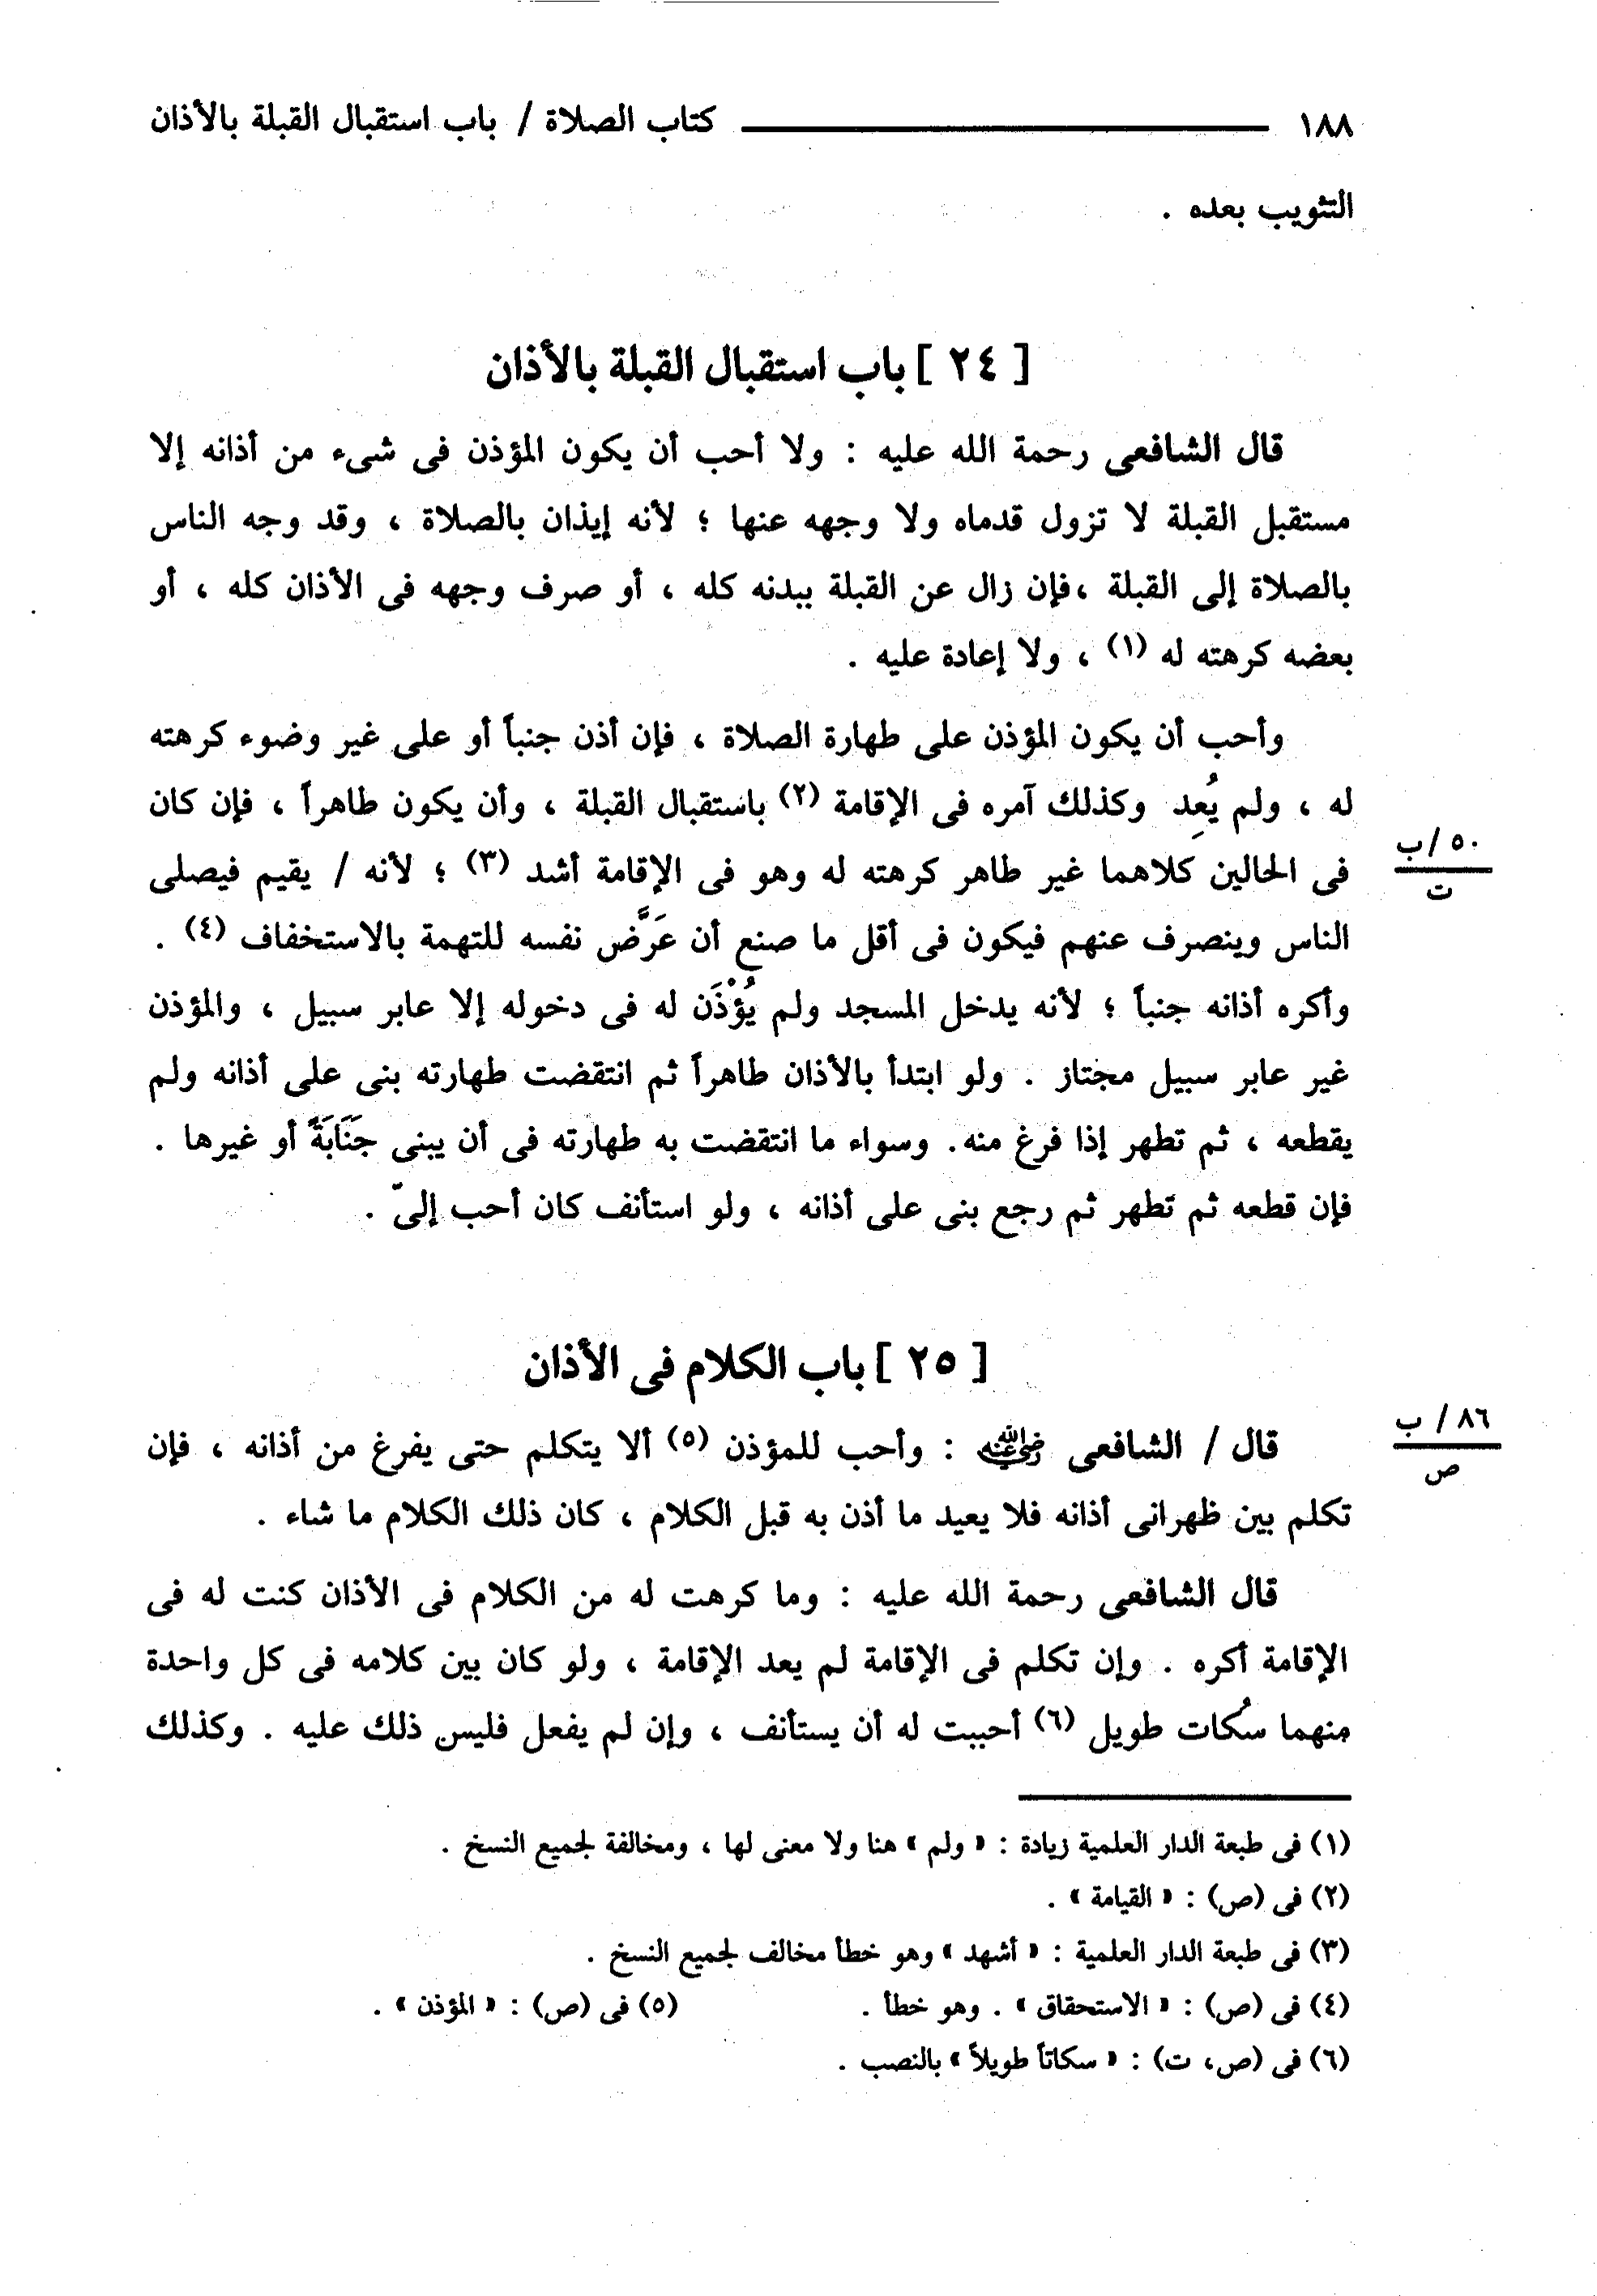 ١٨٨ كتاب الصلاة / باب استقبال القبلة بالأذان
التثويب بعده .
[ ٢٤ ] باب استقبال القبلة بالأذان
قال الشافعى رحمة الله عليه : ولا أحب أن يكون المؤذن فى شىء من أذانه إلا
مستقبل القبلة لا تزول قدماه ولا وجهه عنها ؛ لأنه إيذان بالصلاة ، وقد وجه الناس
بالصلاة إلى القبلة ،فإن زال عن القبلة ببدنه كله ، أو صرف وجهه فى الأذان كله ، أو
بعضه كرهته له (١) ، ولا إعادة عليه .
وأحب أن يكون المؤذن على طهارة الصلاة ، فإن أذن جنباً أو على غير وضوء كرهته
له ، ولم يُعِد وكذلك آمره فى الإقامة (٢) باستقبال القبلة ، وأن يكون طاهراً ، فإن كان
فى الحالين كلاهما غير طاهر كرهته له وهو فى الإقامة أشد (٣) ؛ لأنه / يقيم فيصلى
٥٠ /ب
ت
الناس وينصرف عنهم فيكون فى أقل ما صنع أن عَرَّض نفسه للتهمة بالاستخفاف (٤) .
وأكره أذانه جنباً ؛ لأنه يدخل المسجد ولم يُؤْذَن له فى دخوله إلا عابر سبيل ، والمؤذن
غير عابر سبيل مجتاز . ولو ابتدأ بالأذان طاهراً ثم انتقضت طهارته بنى على أذانه ولم
يقطعه ، ثم تطهر إذا فرغ منه. وسواء ما انتقضت به طهارته فى أن يبنى جَنَابَةً أو غيرها .
فإن قطعه ثم تطهر ثم رجع بنى على أذانه ، ولو استأنف كان أحب إلىّ .
[ ٢٥ ] باب الكلام فى الأذان
قال / الشافعى رضي الله عنه : وأحب للمؤذن (٥) ألا يتكلم حتى يفرغ من أذانه ، فإن
٨٦ / ب
ص
تكلم بين ظهرانى أذانه فلا يعيد ما أذن به قبل الكلام ، كان ذلك الكلام ما شاء .
قال الشافعى رحمة الله عليه : وما كرهت له من الكلام فى الأذان كنت له فى
الإقامة أكره . وإن تكلم فى الإقامة لم يعد الإقامة ، ولو كان بين كلامه فى كل واحدة
منهما سُكات طويل (٦) أحببت له أن يستأنف ، وإن لم يفعل فليس ذلك عليه . وكذلك
(١) فى طبعة الدار العلمية زيادة : « ولم » هنا ولا معنى لها ، ومخالفة لجميع النسخ .
(٢) فى (ص) : « القيامة » .
(٣) فى طبعة الدار العلمية : « أشهد » وهو خطأ مخالف لجميع النسخ .
(٤) فى (ص) : « الاستحقاق » . وهو خطأ . (٥) فى (ص) : « المؤذن » .
(٦) فى (ص، ت) : « سكاتاً طويلاً » بالنصب .